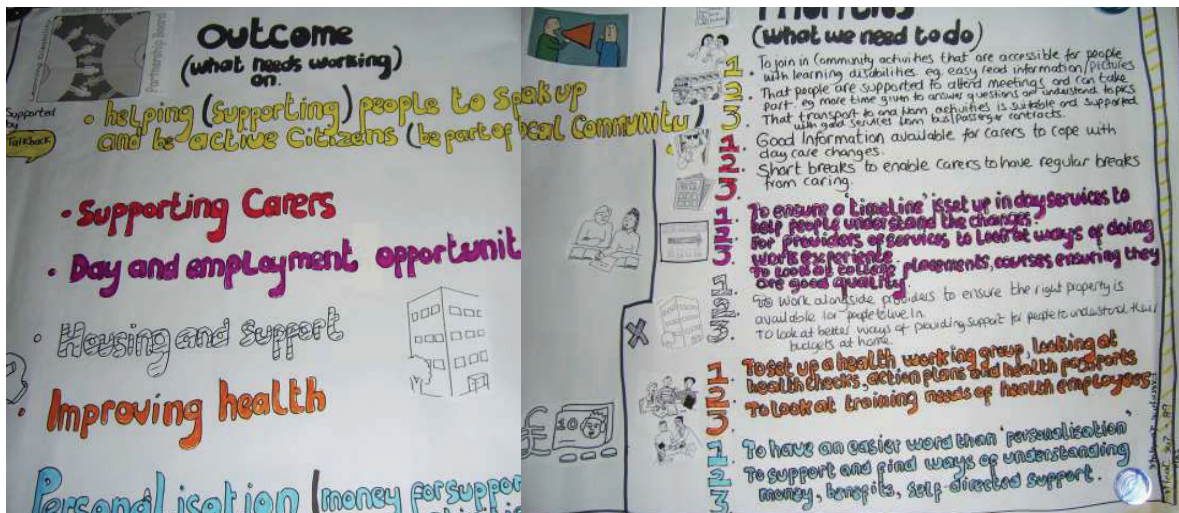 Partnership Board
Supported
by
Talkback
Outcome
(what needs working)
on.
• helping (Supporting) people to speak up
and be active Citizens (be part of local Community)
• Supporting Carers
• Day and employment opportunit
• Housing and Support
• Improving health
Personalisation (money for suppor
10
£
Priorities
(what we need to do)
1 • To join in Community activities that are accessible for people
with learning disabilities. eg. easy read information/pictures
2 • That people are supported to attend meetings and can take
part. eg more time given to answer questions and understand topics
3 • That transport to and from activities is suitable and supported
with good services from bus/passenger contracts.
1 • Good Information available for carers to cope with
day care changes.
2 • Short breaks to enable carers to have regular breaks
3 from caring.
1 • To ensure a 'timeline' is set up in day services to
help people understand the changes.
2 • For providers of services to look at ways of doing
work experience.
3 • To look at college placements, courses ensuring they
are good quality.
1 • To work alongside providers to ensure the right property is
2 available for people to live in.
3 • To look at better ways of providing support for people to understand their
budgets at home.
1 • To set up a health working group, looking at
health checks, action plans and health passports
2 • To look at training needs of health employees.
3
1 • To have an easier word than 'personalisation'
2 • To support and find ways of understanding
3 money, benefits, self-directed support.